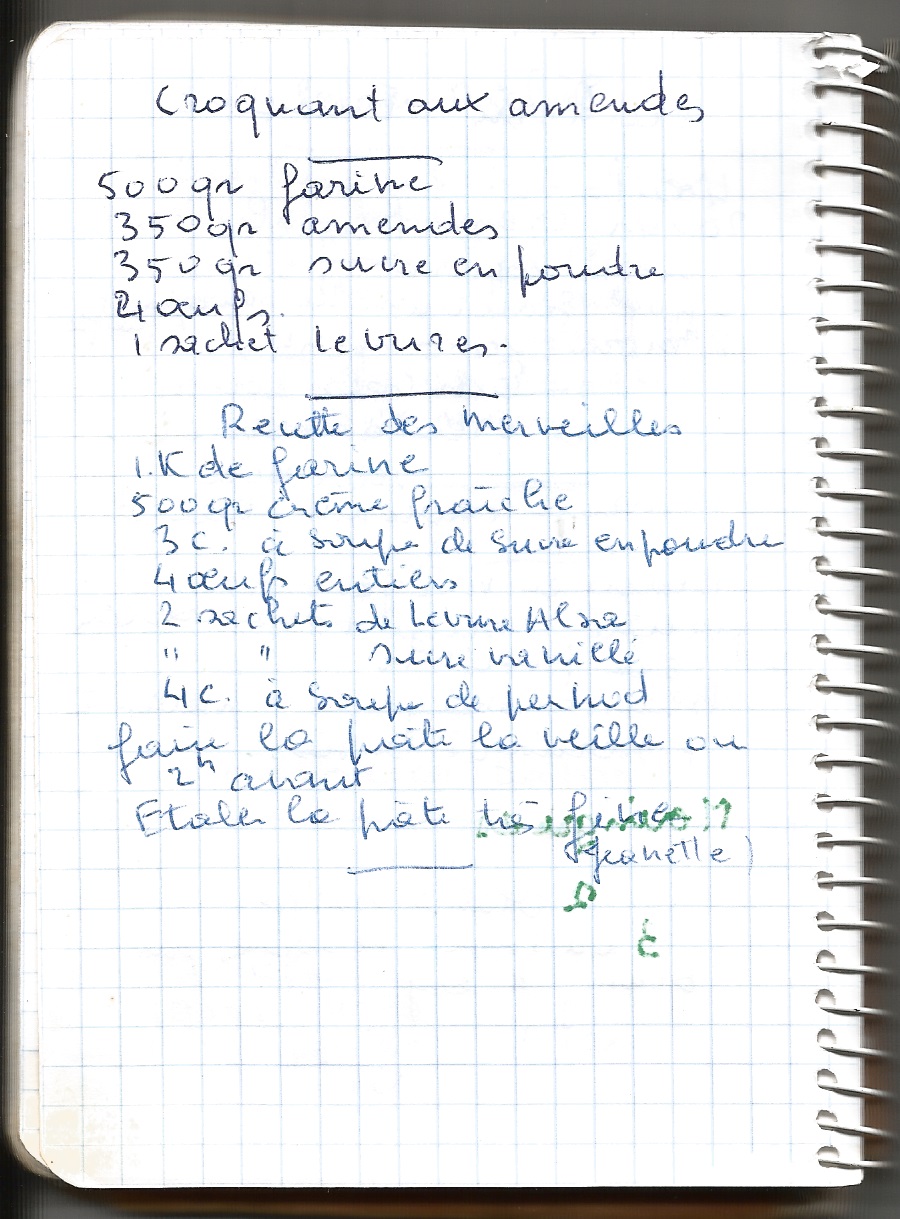 Croquant aux amendes
500gr farine
350gr amendes
350gr sucre en poudre
4 œufs.
1 sachet levures.
Recette des merveilles
1.K de farine
500gr crème fraîche
3c. à soupe de sucre en poudre
4 œufs entiers
2 sachets de levure Alsa
" " sucre vanillé
4c. à soupe de pernod
faire la pâte la veille ou
2h avant
Etaler la pâte très fine
(Jeanette)